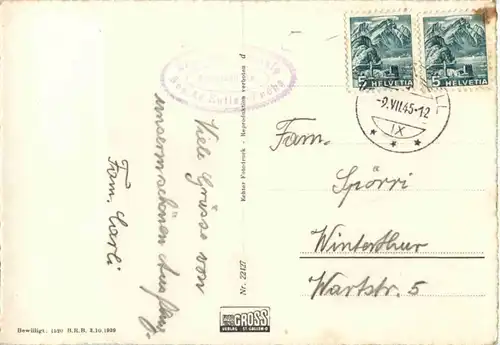 Viele Grüsse von
unserm schönen Ausflug.
Fam. Carli
Bewilligt. 1520 B.R.B. 3.10.1939
Nr. 22127
Echter Fotodruck - Reproduktion verboten d
GROSS
VERLAG ST. GALLEN
5 HELVETIA
5 HELVETIA
-9.VII.45-12
IX
Fam.
Spörri
Winterthur
Wartstr. 5